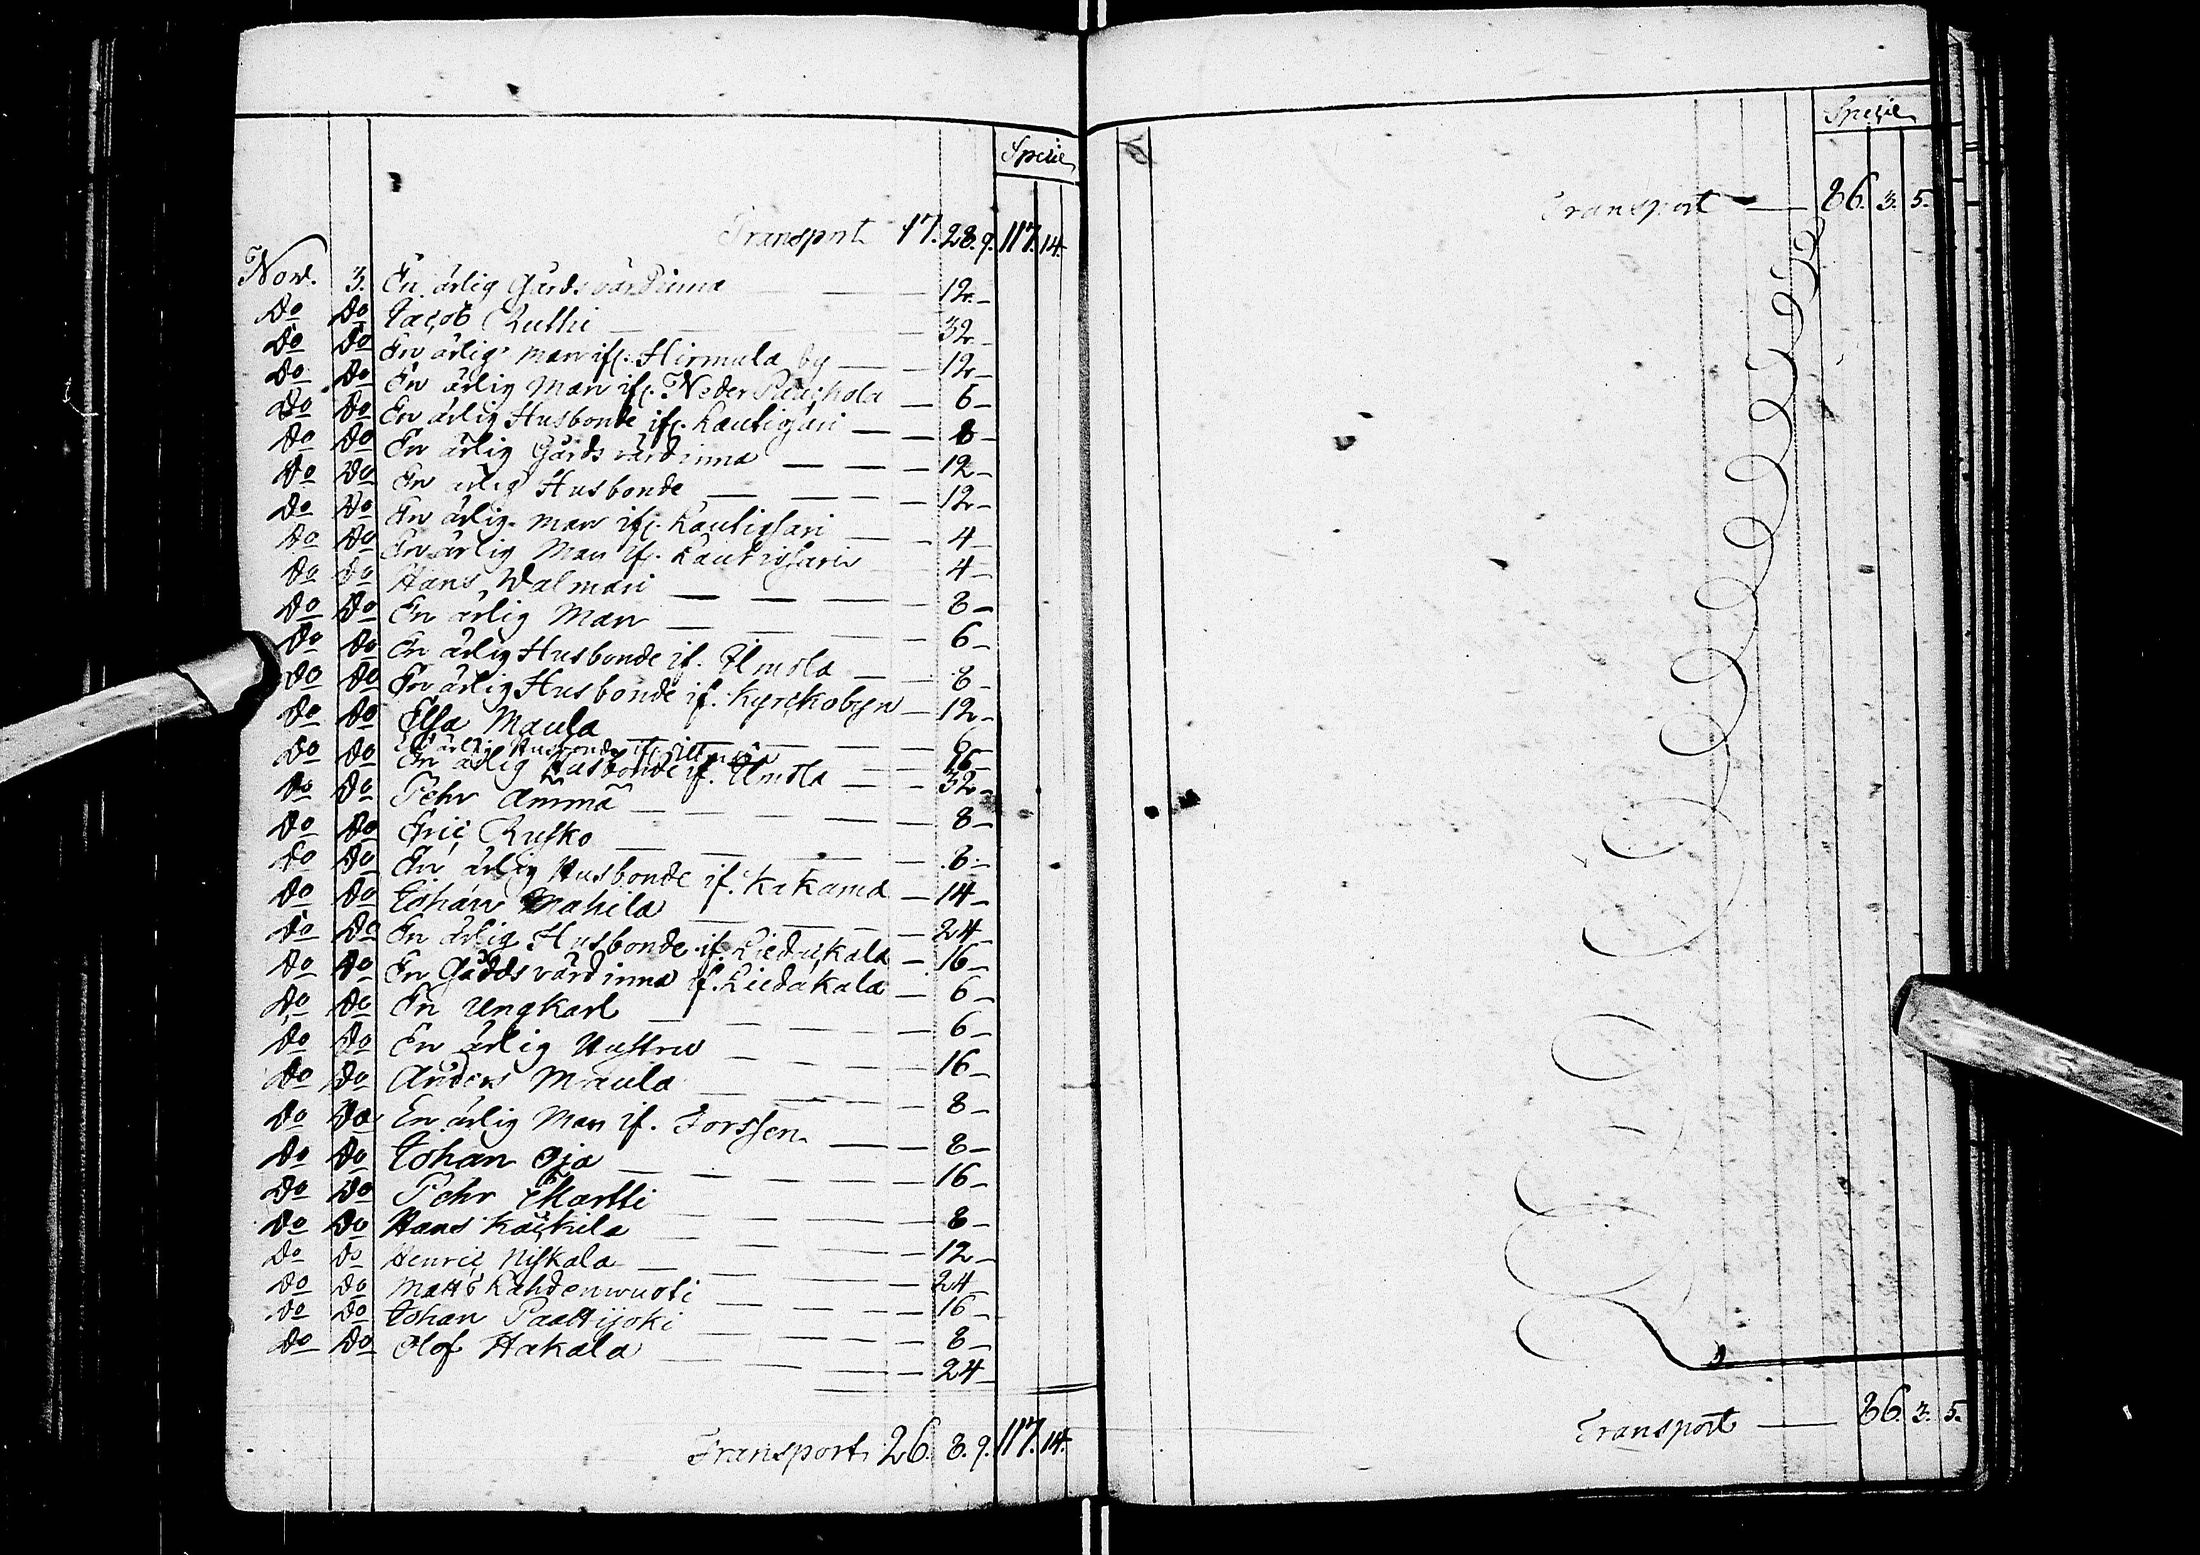 Specie
Transport 17. 28. 9. 117. 14.
Nov. 3. En ärlig Gårdsvärdinna — — 12 –
Do Do Jacob Ruthi — — 32 –
Do Do En ärlig man if. Hirmula by — — 12 –
Do Do En ärlig Man if. Neder — 6 –
Do Do En ärlig Husbonde if. Kautiosari — — 8 –
Do Do En ärlig Gårdsvärdinna — — — 12 –
Do Do En ärlig Husbonde — — — 12 –
Do Do En ärlig man if. Kautiosari — — 4 –
Do Do En ärlig Man if. Kautiosari — 4 –
Do Do Hans Walmari — — — — 8 –
Do Do En ärlig Man — — — — 6 –
Do Do En ärlig Husbonde if. Ilmola — — 8 –
Do Do En ärlig Husbonde if. Kyrckobyn — 12 –
Do Do Elsa Maula — — — 6 –
En ärlig Husbonde if. 16 –
Do Do En ärlig Husbonde if. Ilmola — — 32 –
Do Do Pehr Ämmä — — — — 8 –
Do Do Eric Rusko — — — — 8 –
Do Do En ärlig Husbonde if. Kakama — 14 –
Do Do Johan Mahela — — — 24 –
Do Do En ärlig Husbonde if. Liedakala — 16 –
Do Do En Gårdsvärdinna if. Liedakala — 6 –
Do Do En Ungkarl — — — — 6 –
Do Do En ärlig Hustru — — — 16 –
Do Do Anders Maula — — — 8 –
Do Do En ärlig Man if. Forssen — — 8 –
Do Do Johan Oja — — — — 16 –
Do Do Pehr Martti — — — 8 –
Do Do Hans Käckila — — — 12 –
Do Do Henric Niskala — — — 24
Do Do Matts Kahdenwuoti — — — 16 –
Do Do Johan Paattijoki — — — 8 –
Do Do Olof Hakala — — — 24 –
Transport 26. 8. 9. 117. 14.
Specie
Transport — 86. 3. 5.
Transport — 86. 3. 5.